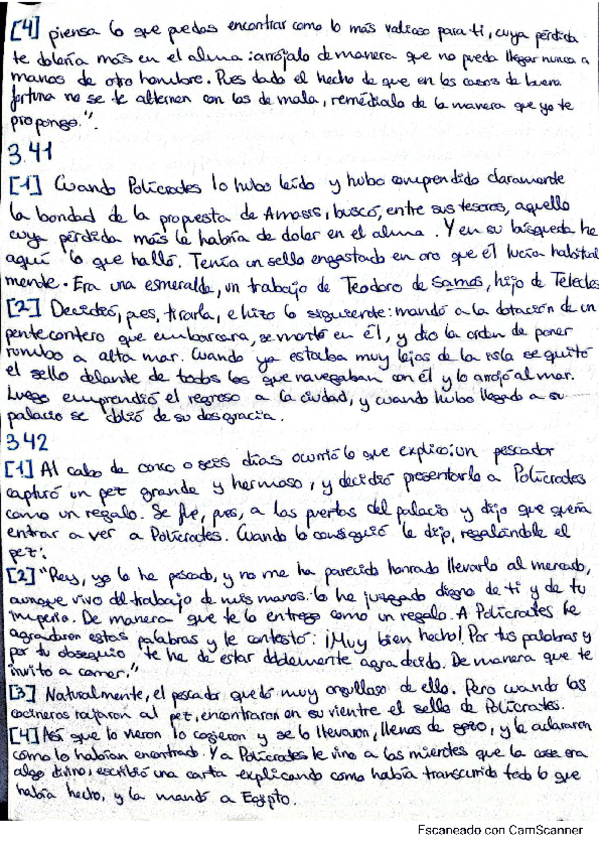 [4] piensa lo que puedas encontrar como lo más valioso para ti, cuya pérdida
te dolería más en el alma: arrójalo de manera que no pueda llegar nunca a
manos de otro hombre. Pues dado el hecho de que en los casos de buena
fortuna no se te alternen con los de mala, remédialo de la manera que yo te
propongo.".
3.41
[1] Cuando Polícrates lo hubo leído y hubo comprendido claramente
la bondad de la propuesta de Amasis, buscó, entre sus tesoros, aquello
cuya pérdida más le habría de doler en el alma. Y en su búsqueda he
aquí lo que halló. Tenía un sello engastado en oro que él lucía habitual
mente. Era una esmeralda, un trabajo de Teodoro de Samos, hijo de Telecles
[2] Decidió, pues, tirarla, e hizo lo siguiente: mandó a la dotación de un
pentecontero que embarcara, se montó en él, y dio la orden de poner
rumbo a alta mar. Cuando ya estaba muy lejos de la isla se quitó
el sello delante de todos los que navegaban con él y lo arrojó al mar.
Luego emprendió el regreso a la ciudad, y cuando hubo llegado a su
palacio se dolió de su desgracia.
342
[1] Al cabo de cinco o seis días ocurrió lo que explico: un pescador
capturó un pez grande y hermoso, y decidió presentarlo a Polícrates
como un regalo. Se fue, pues, a las puertas del palacio y dijo que quería
entrar a ver a Polícrates. Cuando lo consiguió le dijo, regalándole el
pez:
[2] "Rey, yo lo he pescado, y no me ha parecido honrado llevarlo al mercado,
aunque vivo del trabajo de mis manos. Lo he juzgado digno de ti y de tu
imperio. De manera que te lo entrego como un regalo. A Polícrates le
agradaron estas palabras y le contestó: ¡Muy bien hecho! Por tus palabras y
por tu obsequio te he de estar doblemente agradecido. De manera que te
invito a comer."
[3] Naturalmente, el pescador quedó muy orgulloso de ello. Pero cuando los
cocineros rajaron al pez, encontraron en su vientre el sello de Polícrates.
[4] Así que lo vieron lo cogieron y se lo llevaron, llenos de gozo, y le aclararon
cómo lo habían encontrado. Y a Polícrates le vino a las mientes que la cosa era
algo divino; escribió una carta explicando como había transcurrido todo lo que
había hecho, y la mandó a Egipto.
Escaneado con CamScanner